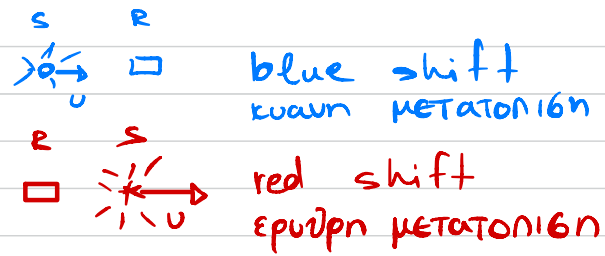 S R
υ
blue shift
κυανη μετατοπιση
R S
υ
red shift
ερυθρη μετατοπιση